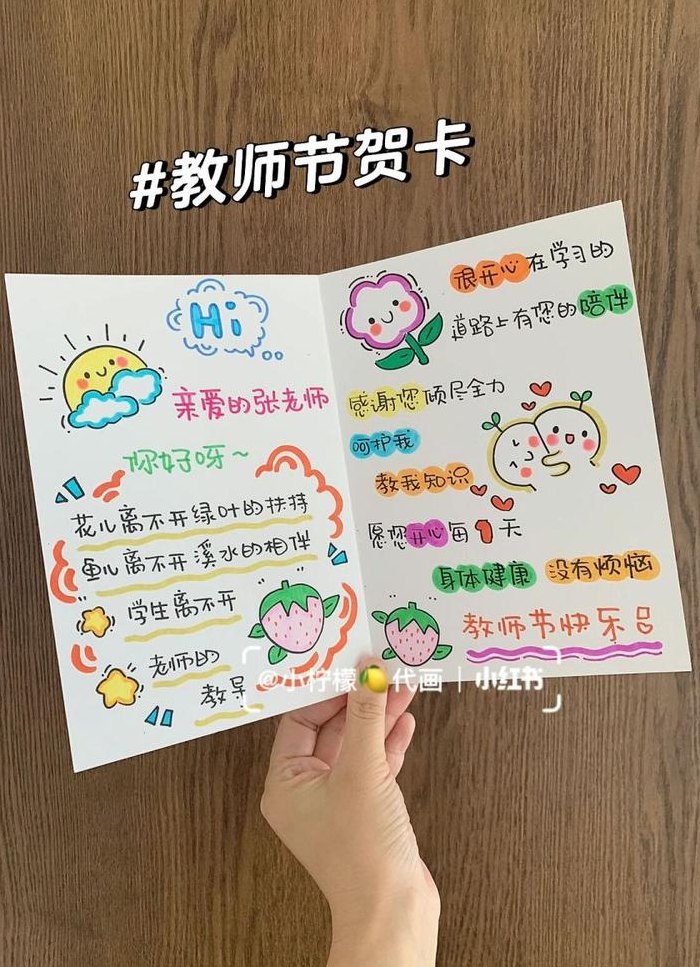 #教师节贺卡
Hi
亲爱的张老师
你好呀~
花儿离不开绿叶的扶持
鱼儿离不开溪水的相伴
学生离不开
老师的
教导
很开心在学习的
道路上有您的陪伴
感谢您倾尽全力
呵护我
教我知识
愿您开心每1天
身体健康 没有烦恼
教师节快乐吕
@小柠檬🍋代画 | 小红书